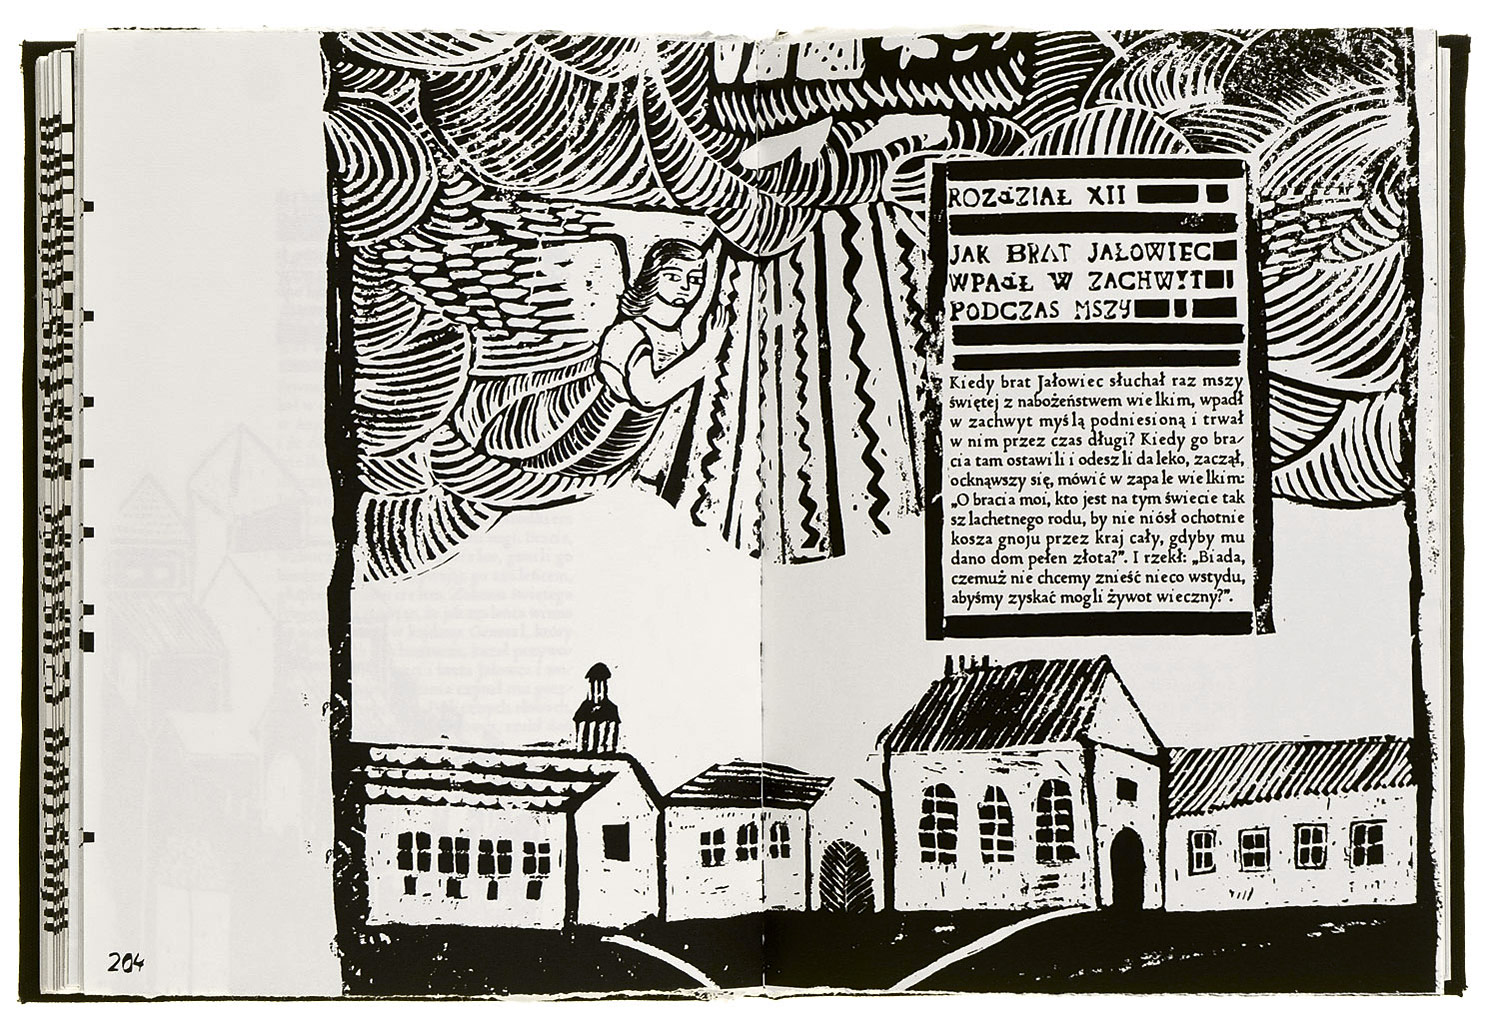 ROZdZIAŁ XII
JAK BRAT JAŁOWIEC
WPAdŁ W ZACHWYT
PODCZAS MSZY
Kiedy brat Jałowiec słuchał raz mszy
świętej z nabożeństwem wielkim, wpadł
w zachwyt myślą podniesioną i trwał
w nim przez czas długi? Kiedy go bra-
cia tam ostawili i odeszli daleko, zaczął,
ocknąwszy się, mówić w zapale wielkim:
„O bracia moi, kto jest na tym świecie tak
szlachetnego rodu, by nie niósł ochotnie
kosza gnoju przez kraj cały, gdyby mu
dano dom pełen złota?”. I rzekł: „Biada,
czemuż nie chcemy znieść nieco wstydu,
abyśmy zyskać mogli żywot wieczny?”.
204